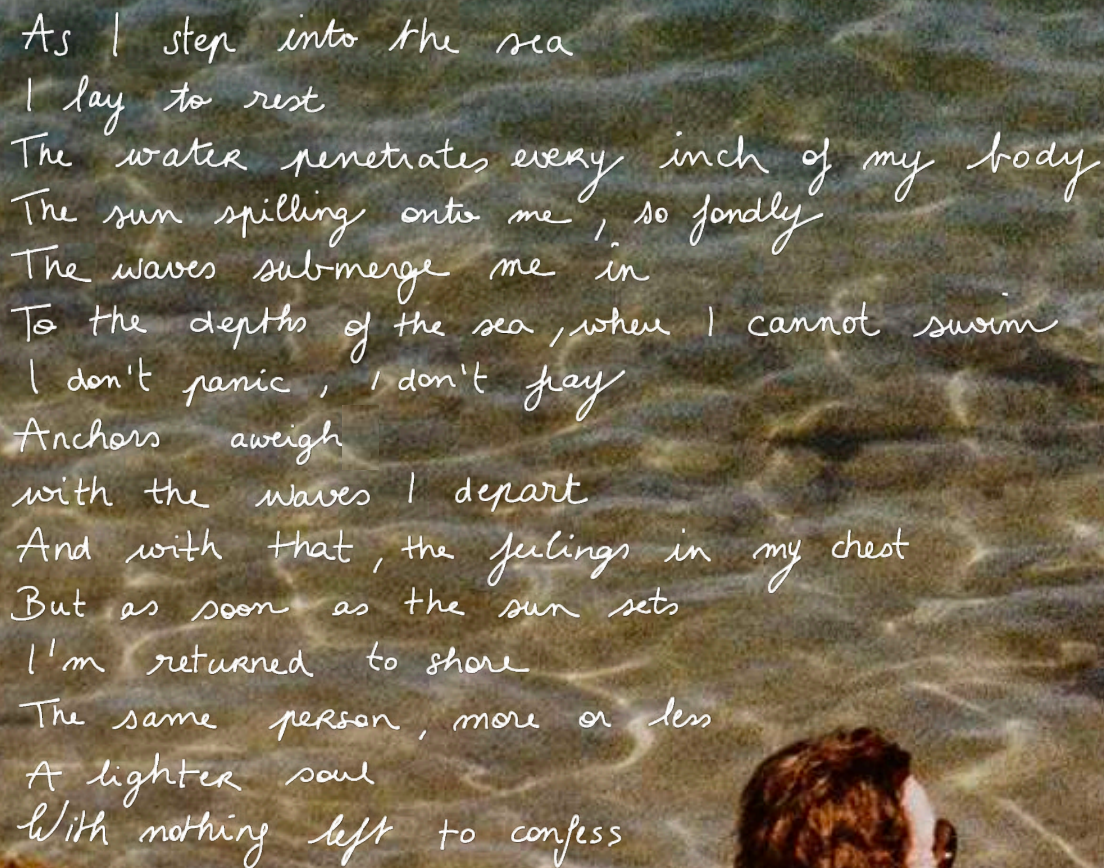 As I step into the sea
I lay to rest
The water penetrates every inch of my body
The sun spilling onto me, so fondly
The waves submerge me in
To the depths of the sea, where I cannot swim
I don't panic, I don't fray
Anchors aweigh
with the waves I depart
And with that, the feelings in my chest
But as soon as the sun sets
I'm returned to shore
The same person, more or less
A lighter soul
With nothing left to confess